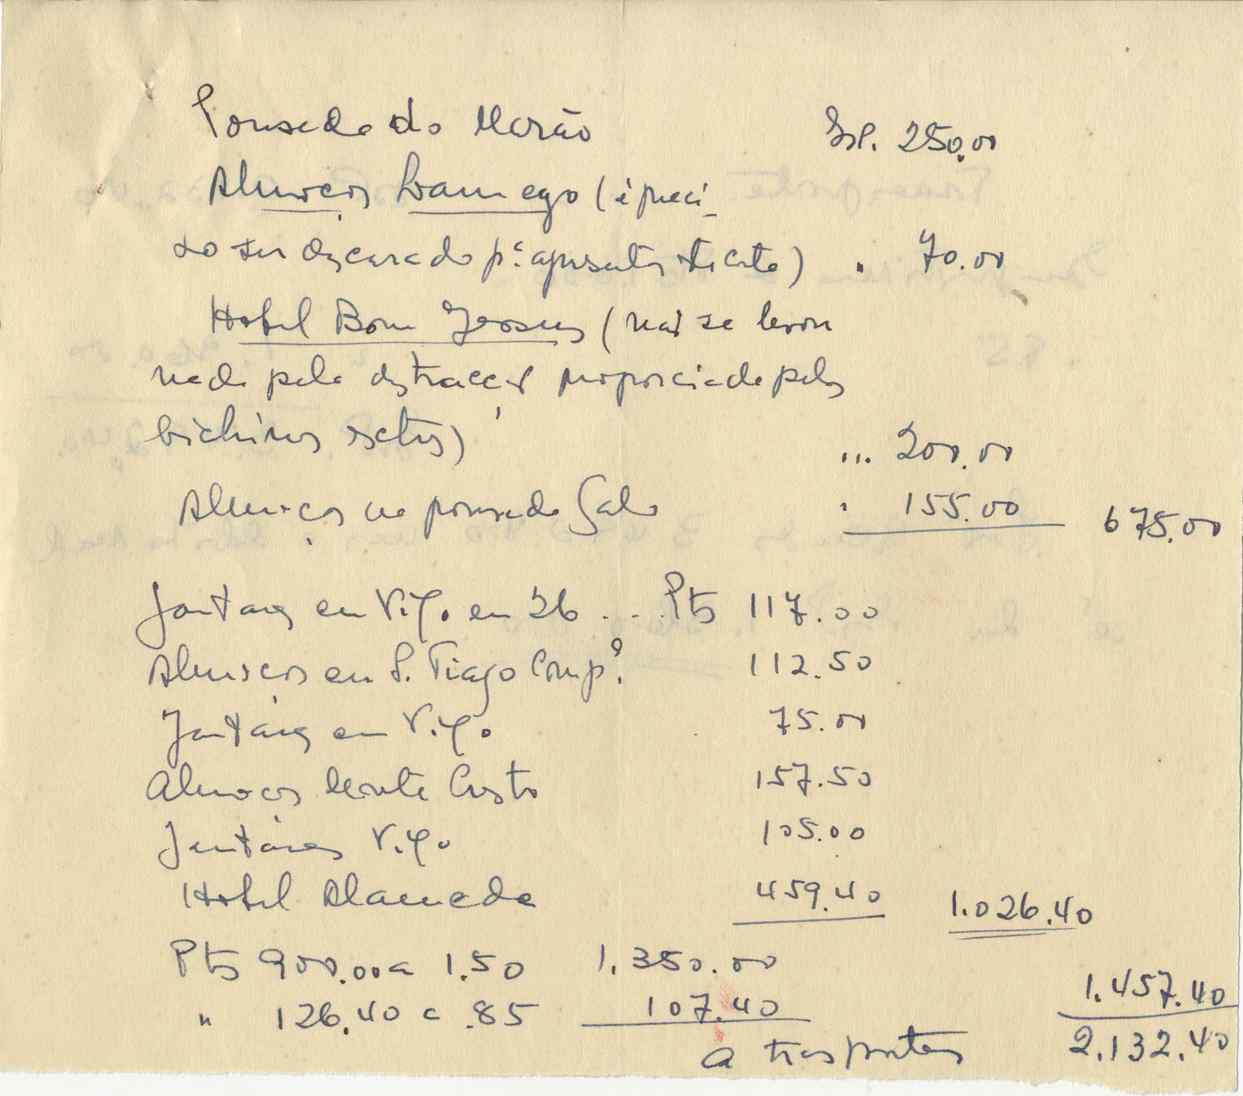 Pousada do Marão Esc. 250.00
Almoços Lamego (é preci_
so ser descarado pª apresentar tal conta) " 70.00
Hotel Bom Jesus (não se levou
nada pela distracção proporciada pelos
bichinos) "" 200.00
Almoços na pousada Galo " 155.00 675.00
Jantares en Vigo en 26 ... Pts 117.00
Almoços en S. Tiago Compª. 112.50
Jantares en Vigo 75.00
Almoços Monte Castro 157.50
Jantares Vigo 105.00
Hotel Alameda 459.40 1.026.40
Pts 900.00 a 1.50 1.350.00
" 126.40 a .85 107.40 1.457.40
a transportar 2.132.40